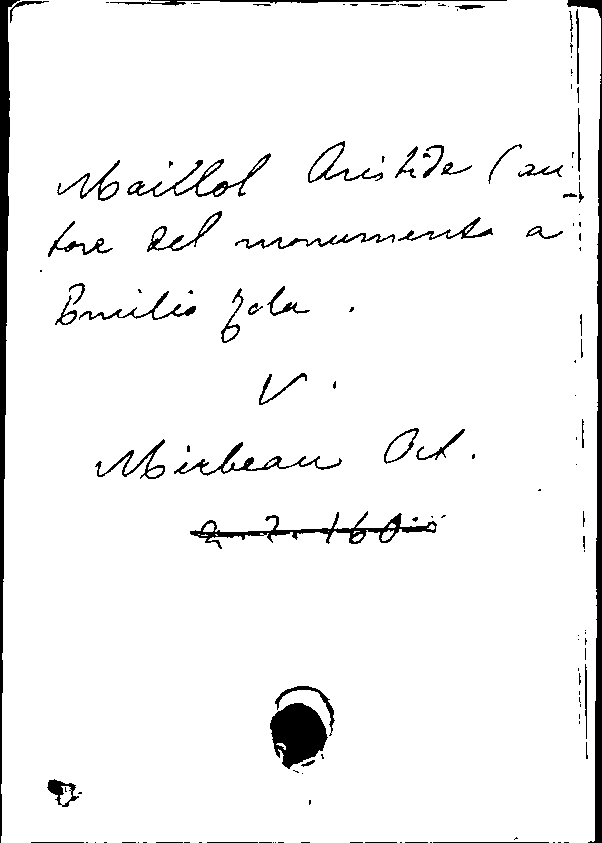 Maillol Aristide (au
tore del monumento a
Emilio Zola .
V.
Mirbeau Oct.